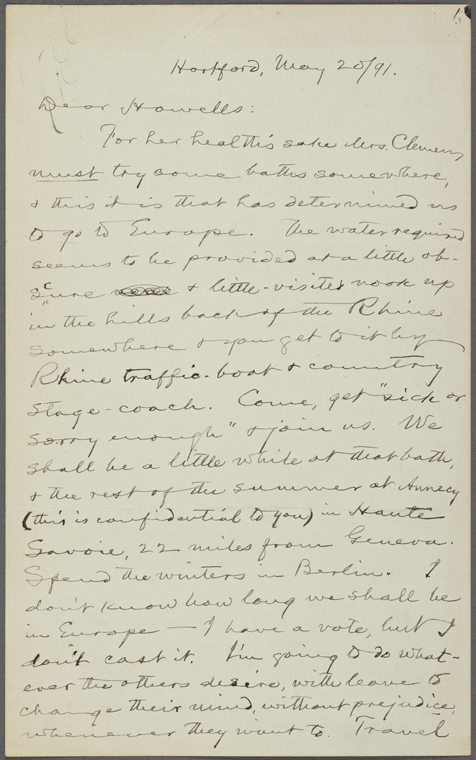 1
Hartford, May 20/91.
Dear Howells:
For her health's sake Mrs. Clemens
must try some baths somewhere,
& this it is that has determined us
to go to Europe. The water required
seems to be provided at a little ob-
scure & little-visited nook up
in the hills back of the Rhine
somewhere & you get to it by
Rhine traffic-boat & country
stage-coach. Come, get "sick or
sorry enough" & join us. We
shall be a little while at that bath,
& the rest of the summer at Annecy
(this is confidential to you) in Haute
Savoie, 22 miles from Geneva.
Spend the winters in Berlin. I
don't know how long we shall be
in Europe — I have a vote, but I
don't cast it. I'm going to do what-
ever the others desire, with leave to
change their mind, without prejudice,
whenever they want to. Travel